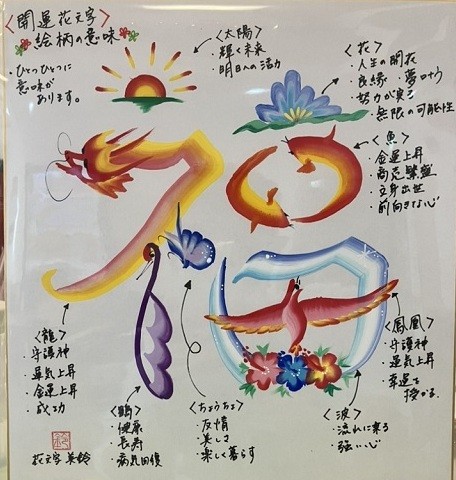 〈開運花文字〉
絵柄の意味
・ひとつひとつに
意味が
あります。
〈太陽〉
・輝く未来
・明日への活力
〈花〉
・人生の開花
・良縁・夢叶う
・努力が実る
・無限の可能性
〈魚〉
・金運上昇
・商売繁盛
・立身出世
・前向きな心
〈龍〉
・守護神
・運気上昇
・金運上昇
・成功
〈鶴〉
・健康
・長寿
・病気回復
〈ちょうちょ〉
・友情
・美しさ
・楽しく暮らす
〈波〉
・流れに乗る
・強い心
〈鳳凰〉
・守護神
・運気上昇
・幸運を
授かる
福
花文字 美鈴